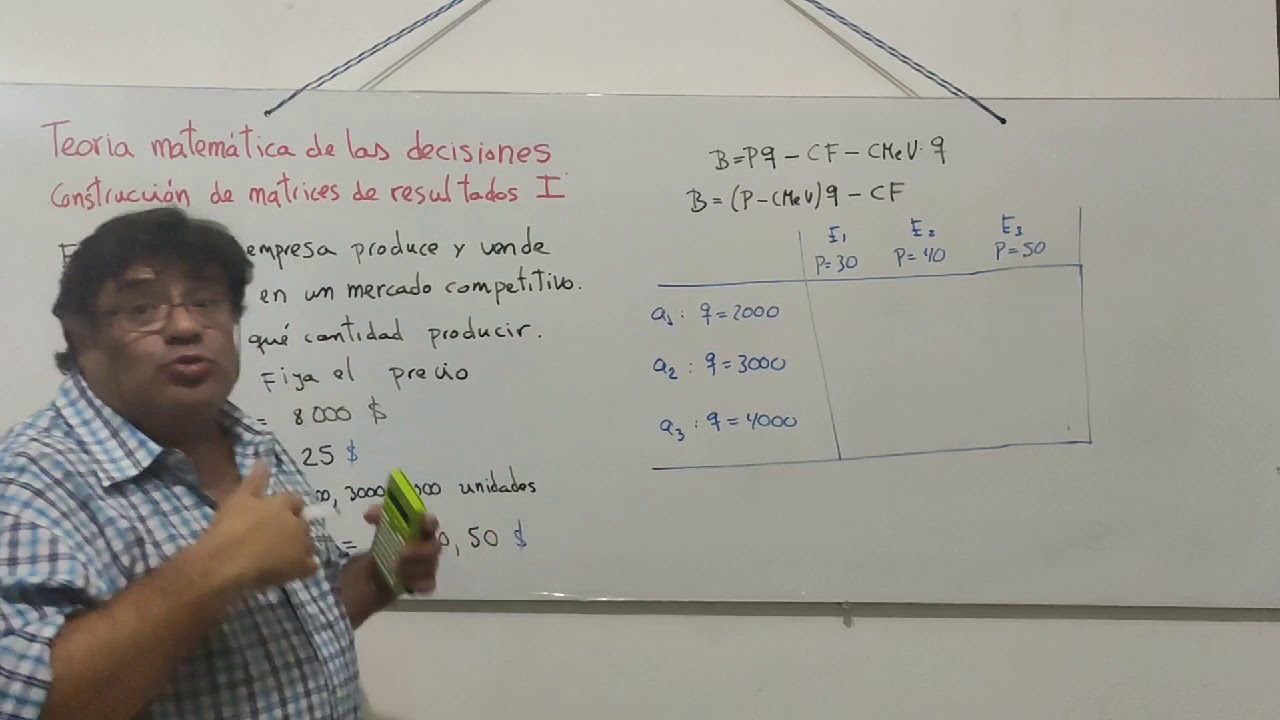 Teoria matemática de las decisiones
Construcción de matrices de resultados I
empresa produce y vende
en un mercado competitivo.
qué cantidad producir.
Fija el precio
= 8000 $
25 $
3000 unidades
= 50 $
B=Pq - CF - CMeV·q
B=(P-CMeV)q - CF
E₁ E₂ E₃
P=30 P=40 P=50
a₁: q=2000
a₂: q=3000
a₃: q=4000